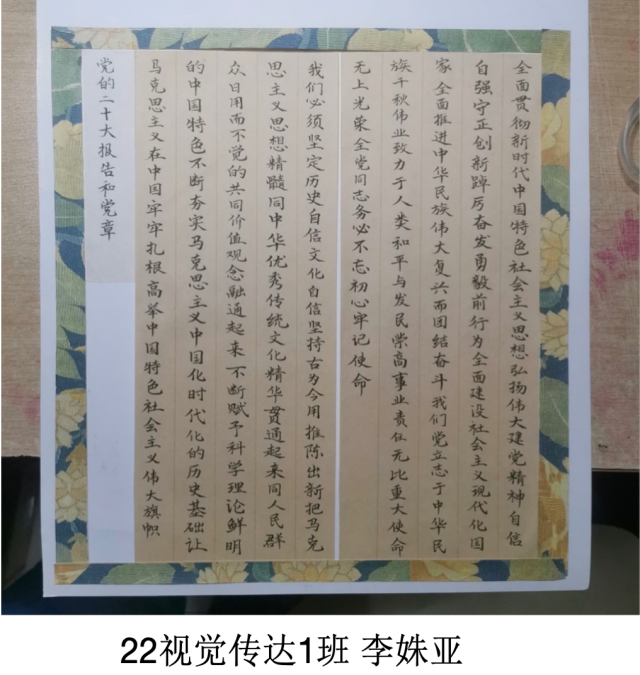 全面贯彻新时代中国特色社会主义思想弘扬伟大建党精神自信
自强守正创新踔厉奋发勇毅前行为全面建设社会主义现代化国
家全面推进中华民族伟大复兴而团结奋斗我们党立志于中华民
族千秋伟业致力于人类和平与发民崇高事业责任无比重大使命
无上光荣全党同志务必不忘初心牢记使命
我们必须坚定历史自信文化自信坚持古为今用推陈出新把马克
思主义思想精髓同中华优秀传统文化精华贯通起来同人民群
众日用而不觉的共同价值观念融通起来不断赋予科学理论鲜明
的中国特色不断夯实马克思主义中国化时代化的历史基础让
马克思主义在中国牢牢扎根高举中国特色社会主义伟大旗帜
党的二十大报告和党章
22视觉传达1班 李姝亚